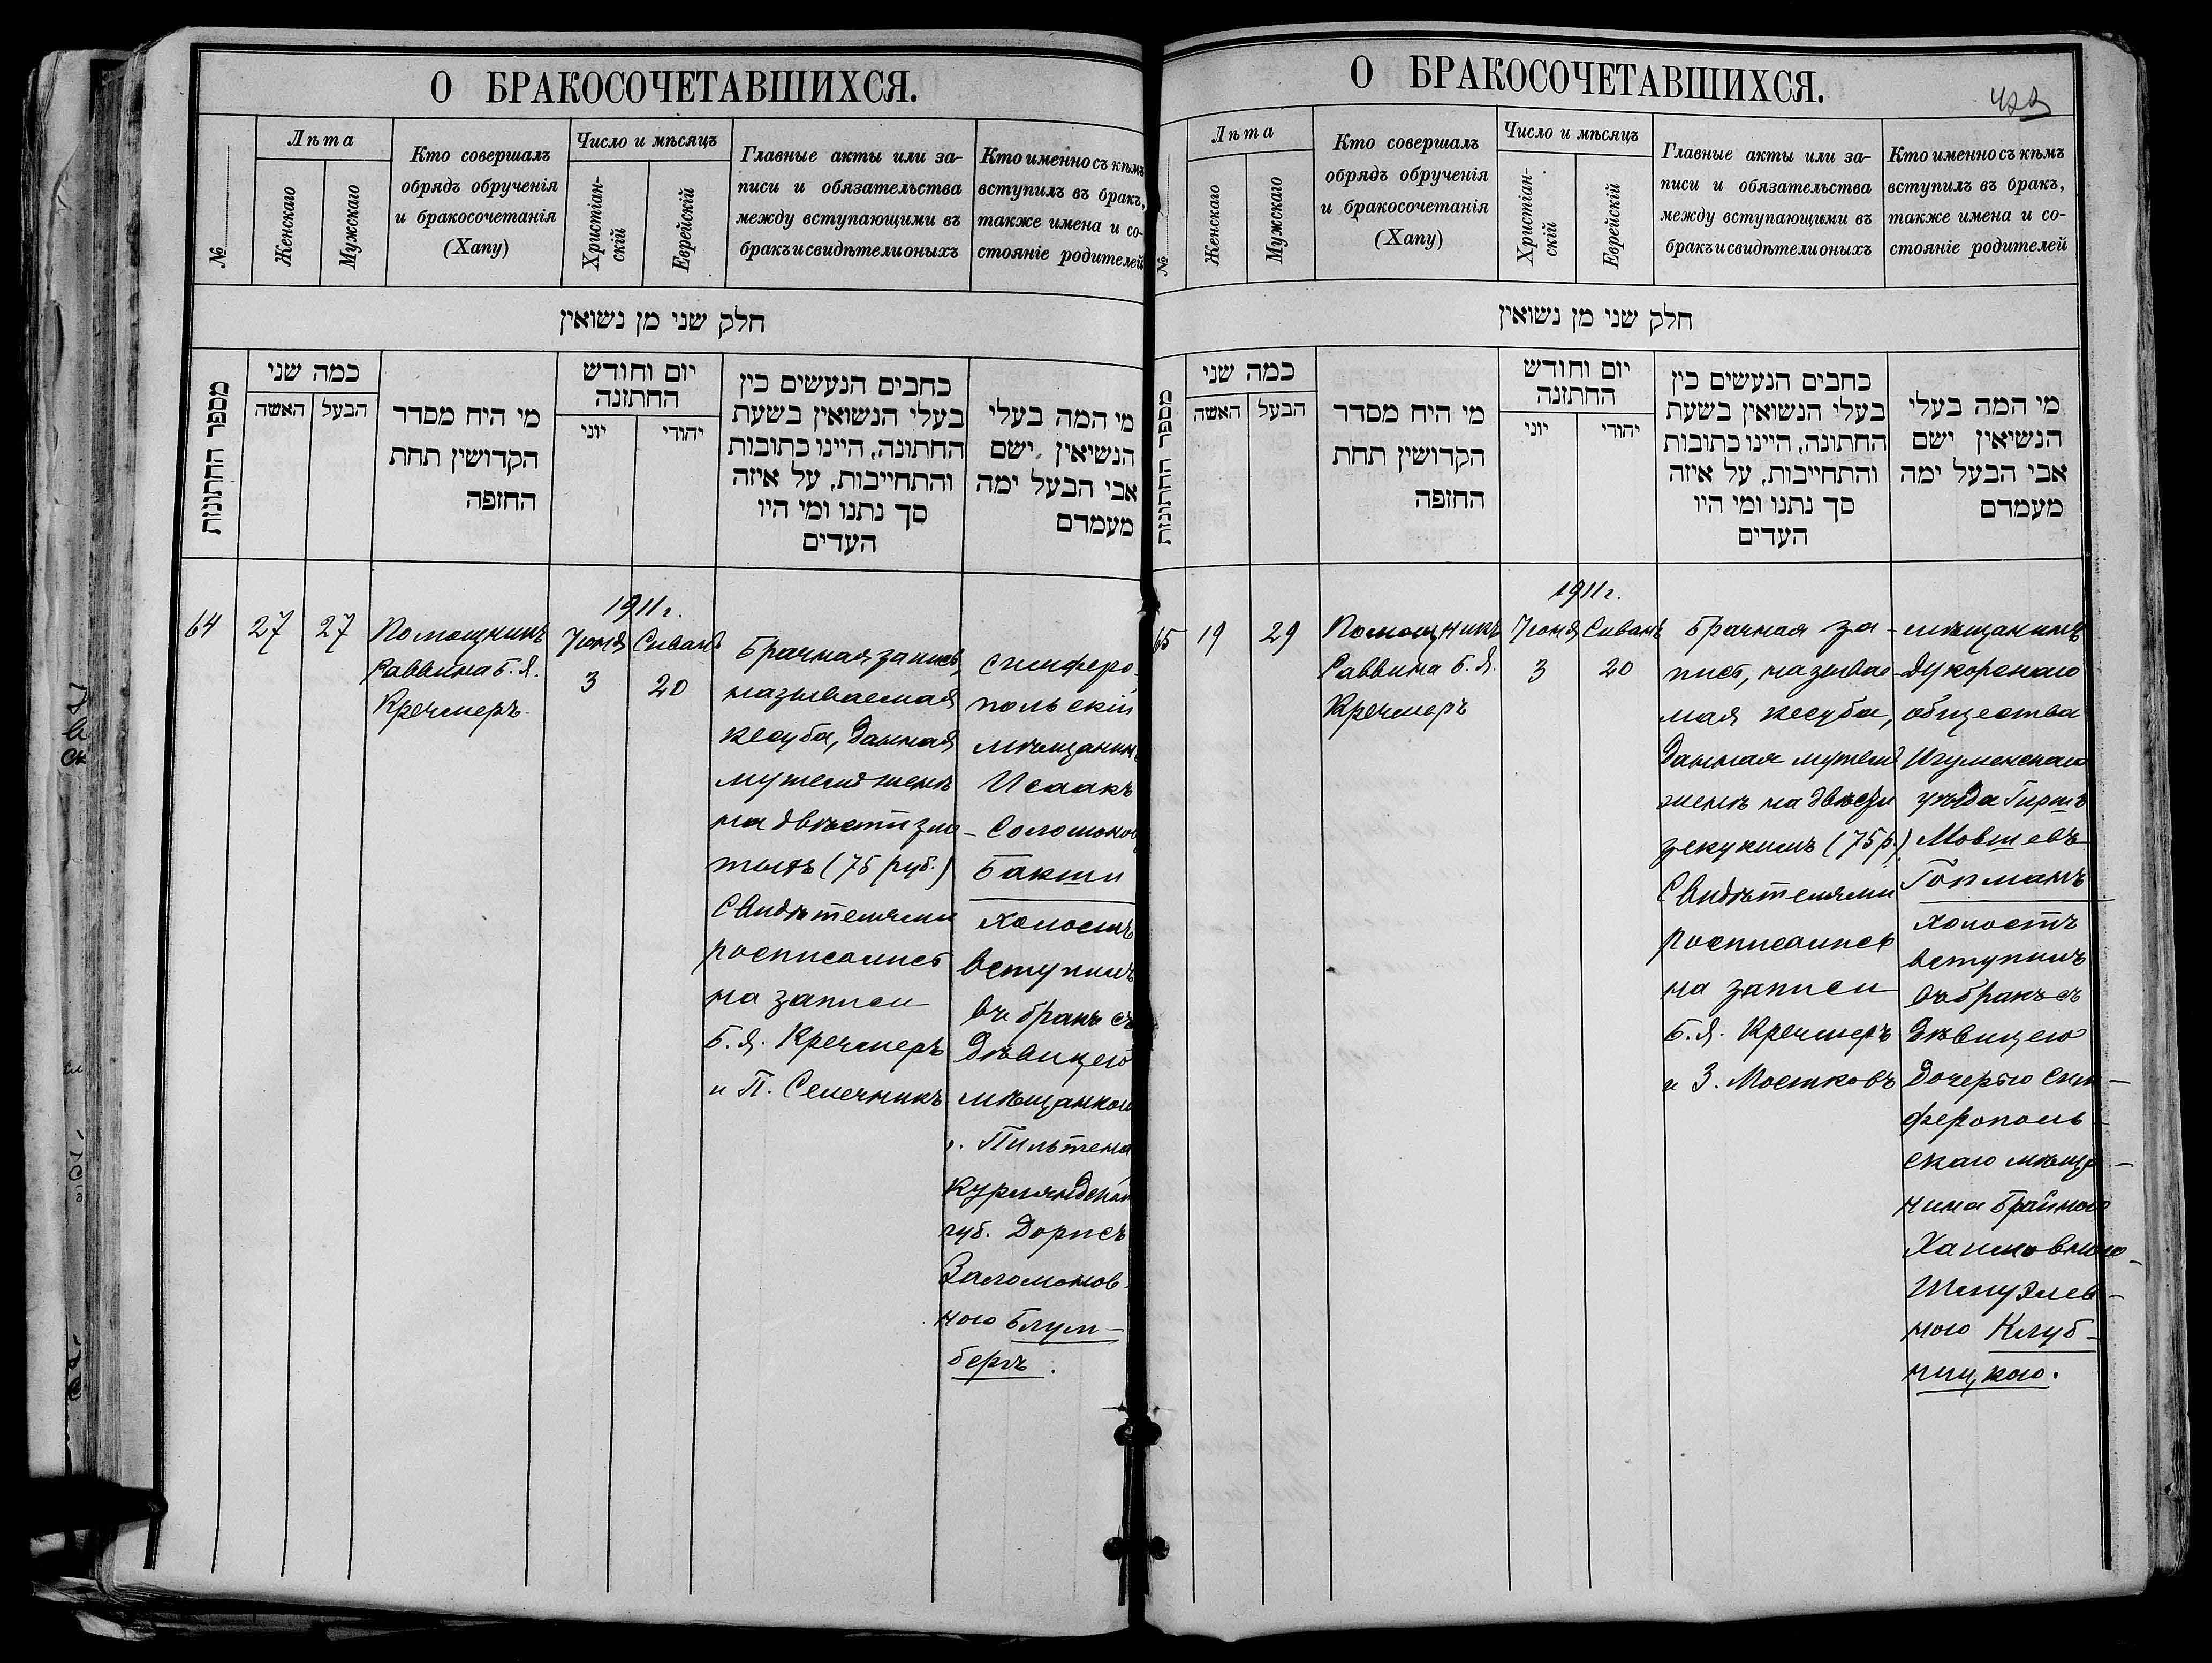 О БРАКОСОЧЕТАВШИХСЯ.
№
Лѣта
Женскаго
Мужскаго
Кто совершалъ
обрядъ обрученія
и бракосочетанія
(Хапу)
Число и мѣсяцъ
Христіан-
скій
Еврейскій
Главные акты или за-
писи и обязательства
между вступающими въ
бракъ и свидѣтели оныхъ
Кто именно съ кѣмъ
вступилъ въ бракъ,
также имена и со-
стояніе родителей
חלק שני מן נשואין
מספר החתונות
כמה שני
האשה
הבעל
מי היח מסדר
הקדושין תחת
החזפה
יום וחודש
החתזנה
יוני
יהודי
כחבים הנעשים כין
בעלי הנשואין בשעת
החתונה, היינו כתובות
והתחייבות, על איזה
סך נתנו ומי היו
העדים
מי המה בעלי
הנשיאין ישם
אבי הבעל ימה
מעמדם
64
27
27
Помощникъ
Раввина Б. Я.
Кречмеръ
1911 г.
Іюня
3
Сиванъ
20
Брачная запись,
называемая
кесуба, данная
мужемъ женѣ
на двѣсти зло-
тыхъ (75 руб.)
Свидѣтелями
росписались
на записи
Б. Я. Кречмеръ
и П. Селечникъ
Симферо-
польскій
мѣщанинъ
Исаакъ
Соломоновъ
Бакши
холостъ
вступилъ
въ бракъ съ
Дѣвицею
мѣщанкою
г. Пильтена
Курляндской
губ. Дорисъ
Заломонов-
ною Блум-
бергъ.
О БРАКОСОЧЕТАВШИХСЯ.
№
Лѣта
Женскаго
Мужскаго
Кто совершалъ
обрядъ обрученія
и бракосочетанія
(Хапу)
Число и мѣсяцъ
Христіан-
скій
Еврейскій
Главные акты или за-
писи и обязательства
между вступающими въ
бракъ и свидѣтели оныхъ
Кто именно съ кѣмъ
вступилъ въ бракъ,
также имена и со-
стояніе родителей
חלק שני מן נשואין
מספר החתונות
כמה שני
האשה
הבעל
מי היח מסדר
הקדושין תחת
החזפה
יום וחודש
החתזנה
יוני
יהודי
כחבים הנעשים כין
בעלי הנשואין בשעת
החתונה, היינו כתובות
והתחייבות, על איזה
סך נתנו ומי היו
העדים
מי המה בעלי
הנשיאין ישם
אבי הבעל ימה
מעמדם
65
19
29
Помощникъ
Раввина Б. Я.
Кречмеръ
1911 г.
Іюня
3
Сиванъ
20
Брачная за-
пись, называе-
мая кесуба,
данная мужемъ
женѣ на двѣсти
зекукимъ (75 р.)
Свидѣтелями
росписались
на записи
Б. Я. Кречмеръ
и З. Мостковъ
мѣщанинъ
Дукорскаго
общества
Игуменскаго
уѣзда Гиршъ
Мовшевъ
Гопманъ
холостъ
вступилъ
въ бракъ съ
Дѣвицею
Дочерью Сим-
ферополь-
скаго мѣща-
нина Брайною
Хаимовною-
Шмуэлев-
ною Клуб-
ницкою.